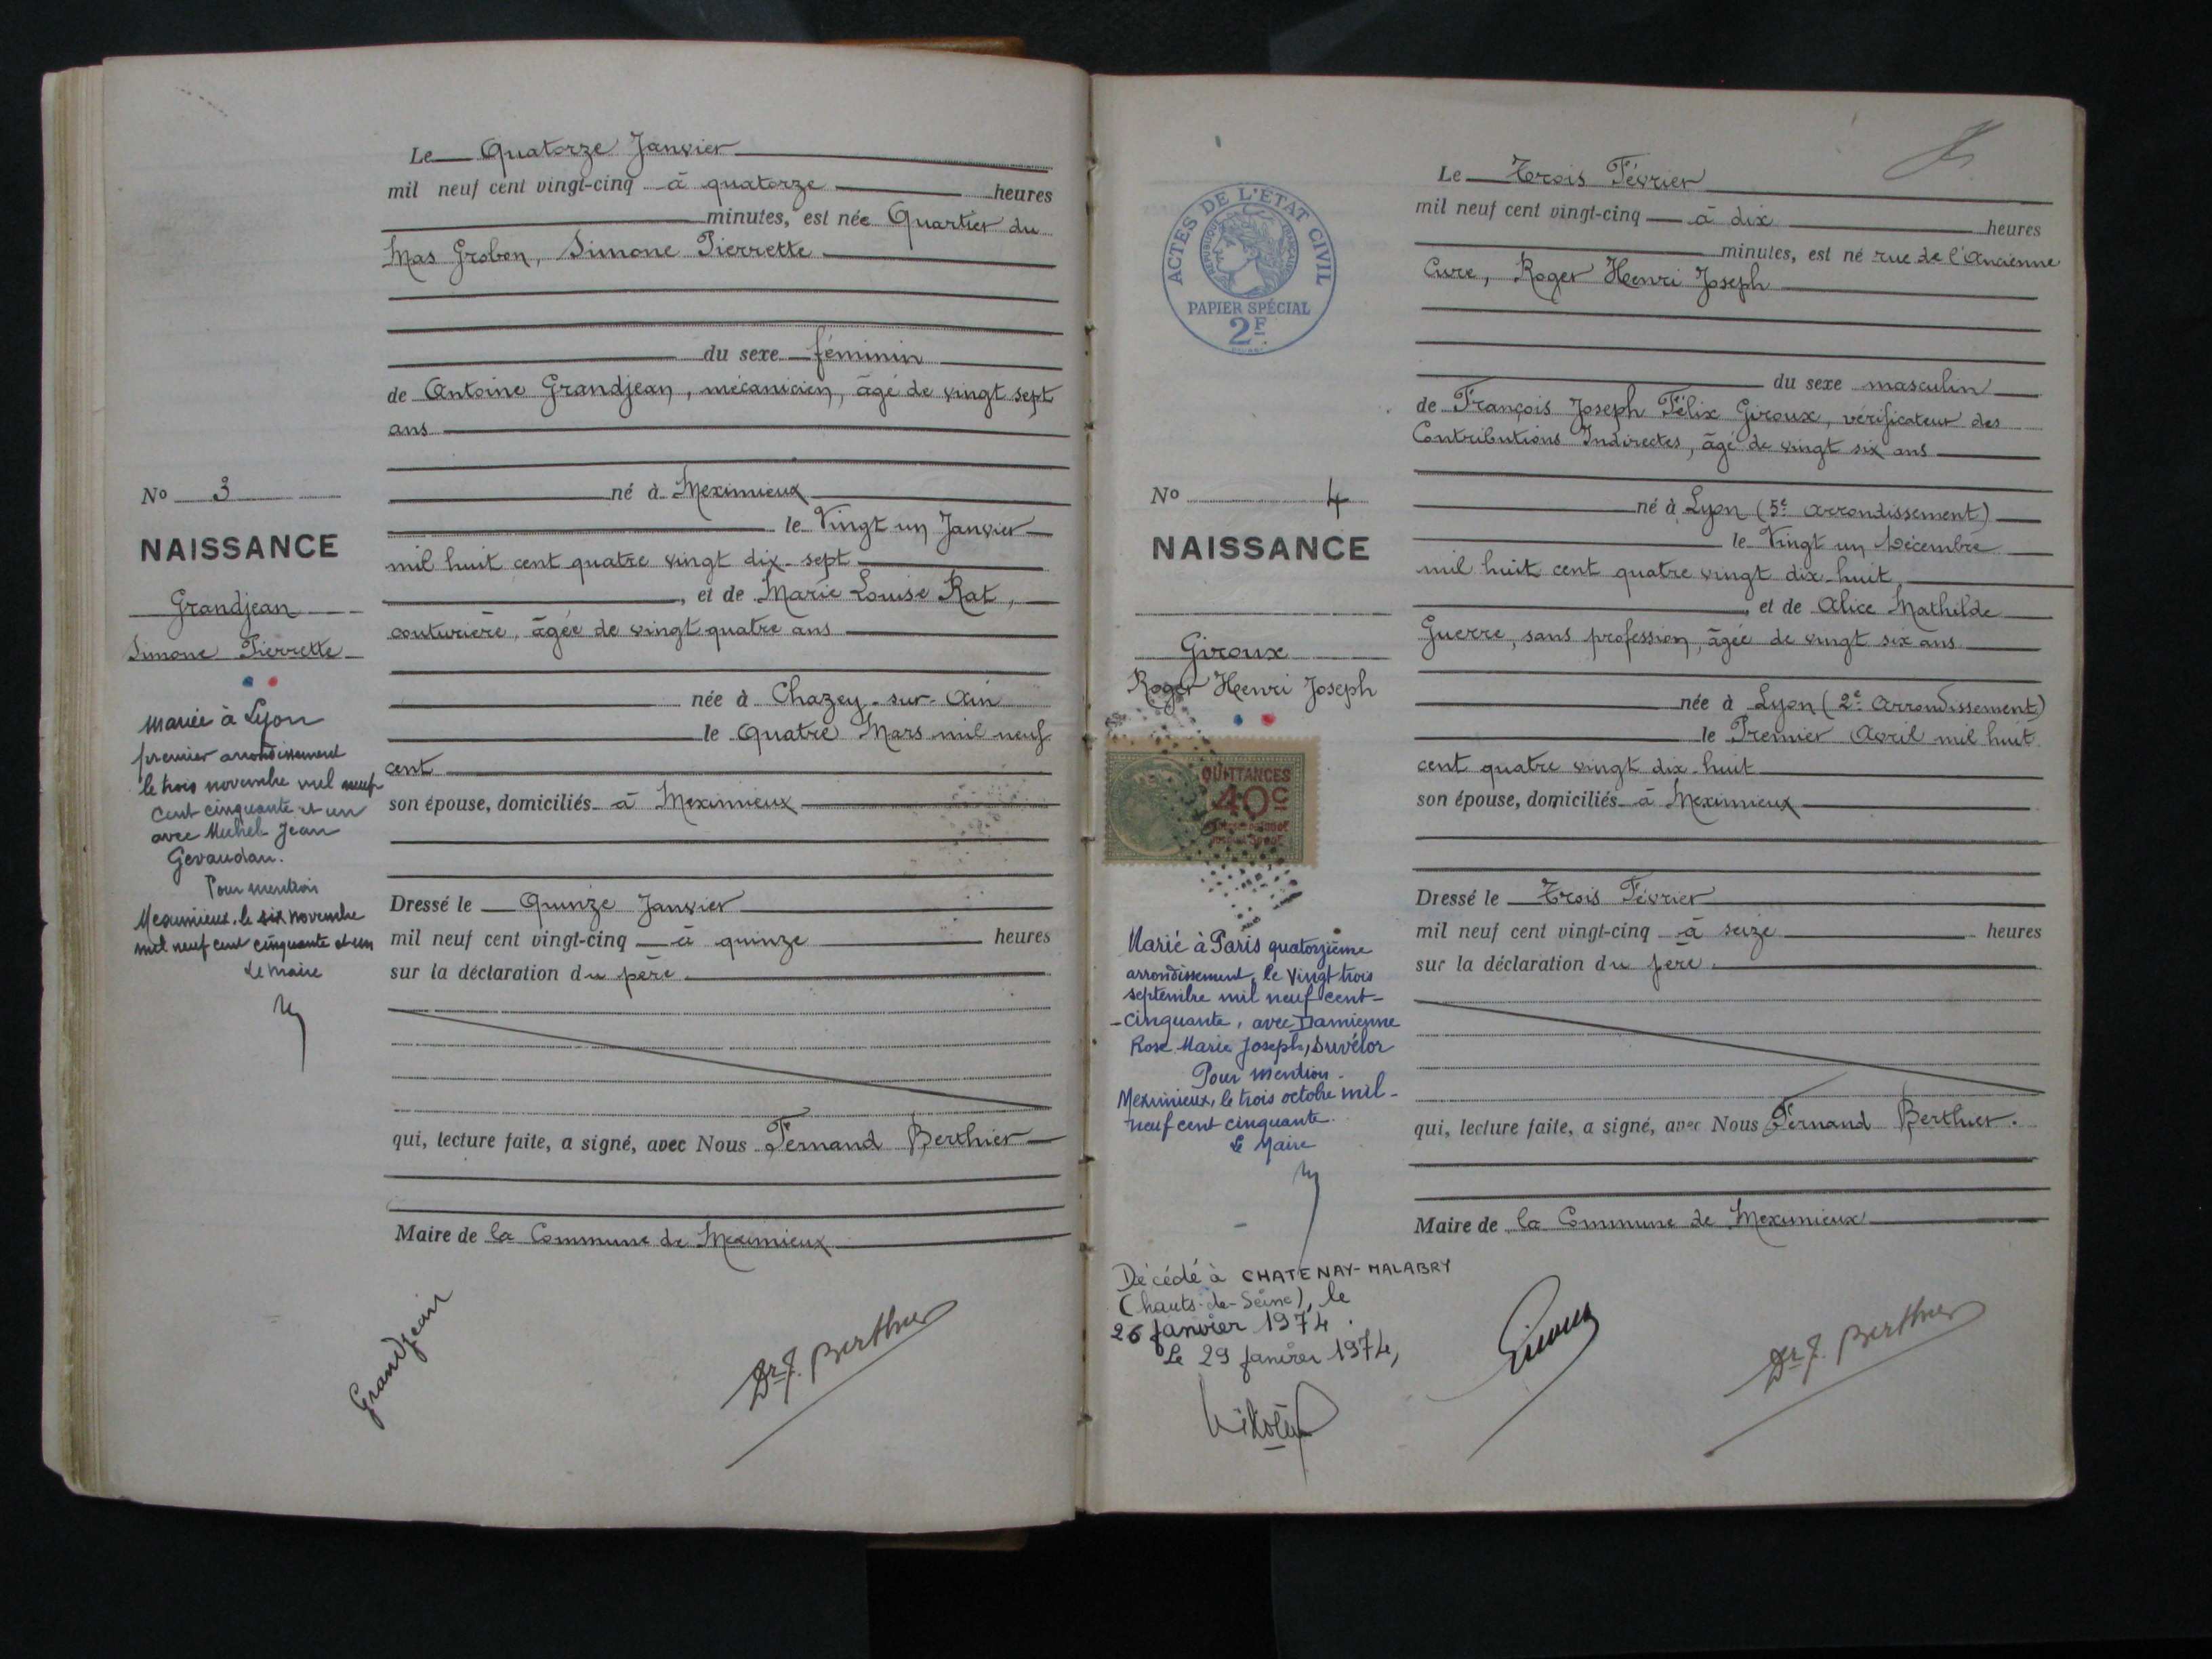 Le Quatorze Janvier
mil neuf cent vingt-cinq à quatorze heures
minutes, est née Quartier du
Mas Groben, Simone Pierrette
du sexe féminin
de Antoine Grandjean, mécanicien, âgé de vingt sept
ans
né à Meximieux
le Vingt un Janvier
mil huit cent quatre vingt dix-sept
, et de Marie Louise Rat,
couturière, âgée de vingt quatre ans
née à Chazey-sur-Ain
le Quatre Mars mil neuf
cent
son épouse, domiciliés à Meximieux
Dressé le Quinze Janvier
mil neuf cent vingt-cinq à quinze heures
sur la déclaration du père
qui, lecture faite, a signé, avec Nous Fernand Berthier
Maire de la Commune de Meximieux
Grandjean
Dr F. Berthier
No 3
NAISSANCE
Grandjean
Simone Pierrette
mariée à Lyon
premier arrondissement
le trois novembre mil neuf
cent cinquante et un
avec Michel Jean
Gevaudan.
Pour mention
Meximieux, le six novembre
mil neuf cent cinquante et un
Le Maire
ACTES DE L'ÉTAT CIVIL
RÉPUBLIQUE FRANÇAISE
PAPIER SPÉCIAL
2F
No 4
NAISSANCE
Giroux
Roger Henri Joseph
QUITTANCES
40c
Marié à Paris quatorzième
arrondissement, le vingt trois
septembre mil neuf cent-
-cinquante, avec Damienne
Rose Marie Joseph, Suvélor
Pour mention-
Meximieux, le trois octobre mil-
neuf cent cinquante.
Le Maire
Décédé à CHATENAY-MALABRY
(hauts-de-Seine), le
26 janvier 1974.
Le 29 janvier 1974,
Le Trois Février
mil neuf cent vingt-cinq à dix heures
minutes, est né rue de l'Ancienne
Cure, Roger Henri Joseph
du sexe masculin
de François Joseph Félix Giroux, vérificateur des
Contributions Indirectes, âgé de vingt six ans
né à Lyon (5e arrondissement)
le Vingt un Décembre
mil huit cent quatre vingt dix-huit
, et de Alice Mathilde
Guerre, sans profession, âgée de vingt six ans
née à Lyon (2e Arrondissement)
le Premier Avril mil huit
cent quatre vingt dix-huit
son épouse, domiciliés à Meximieux
Dressé le Trois Février
mil neuf cent vingt-cinq à seize heures
sur la déclaration du père.
qui, lecture faite, a signé, avec Nous Fernand Berthier.
Maire de la Commune de Meximieux
Giroux
Dr F. Berthier